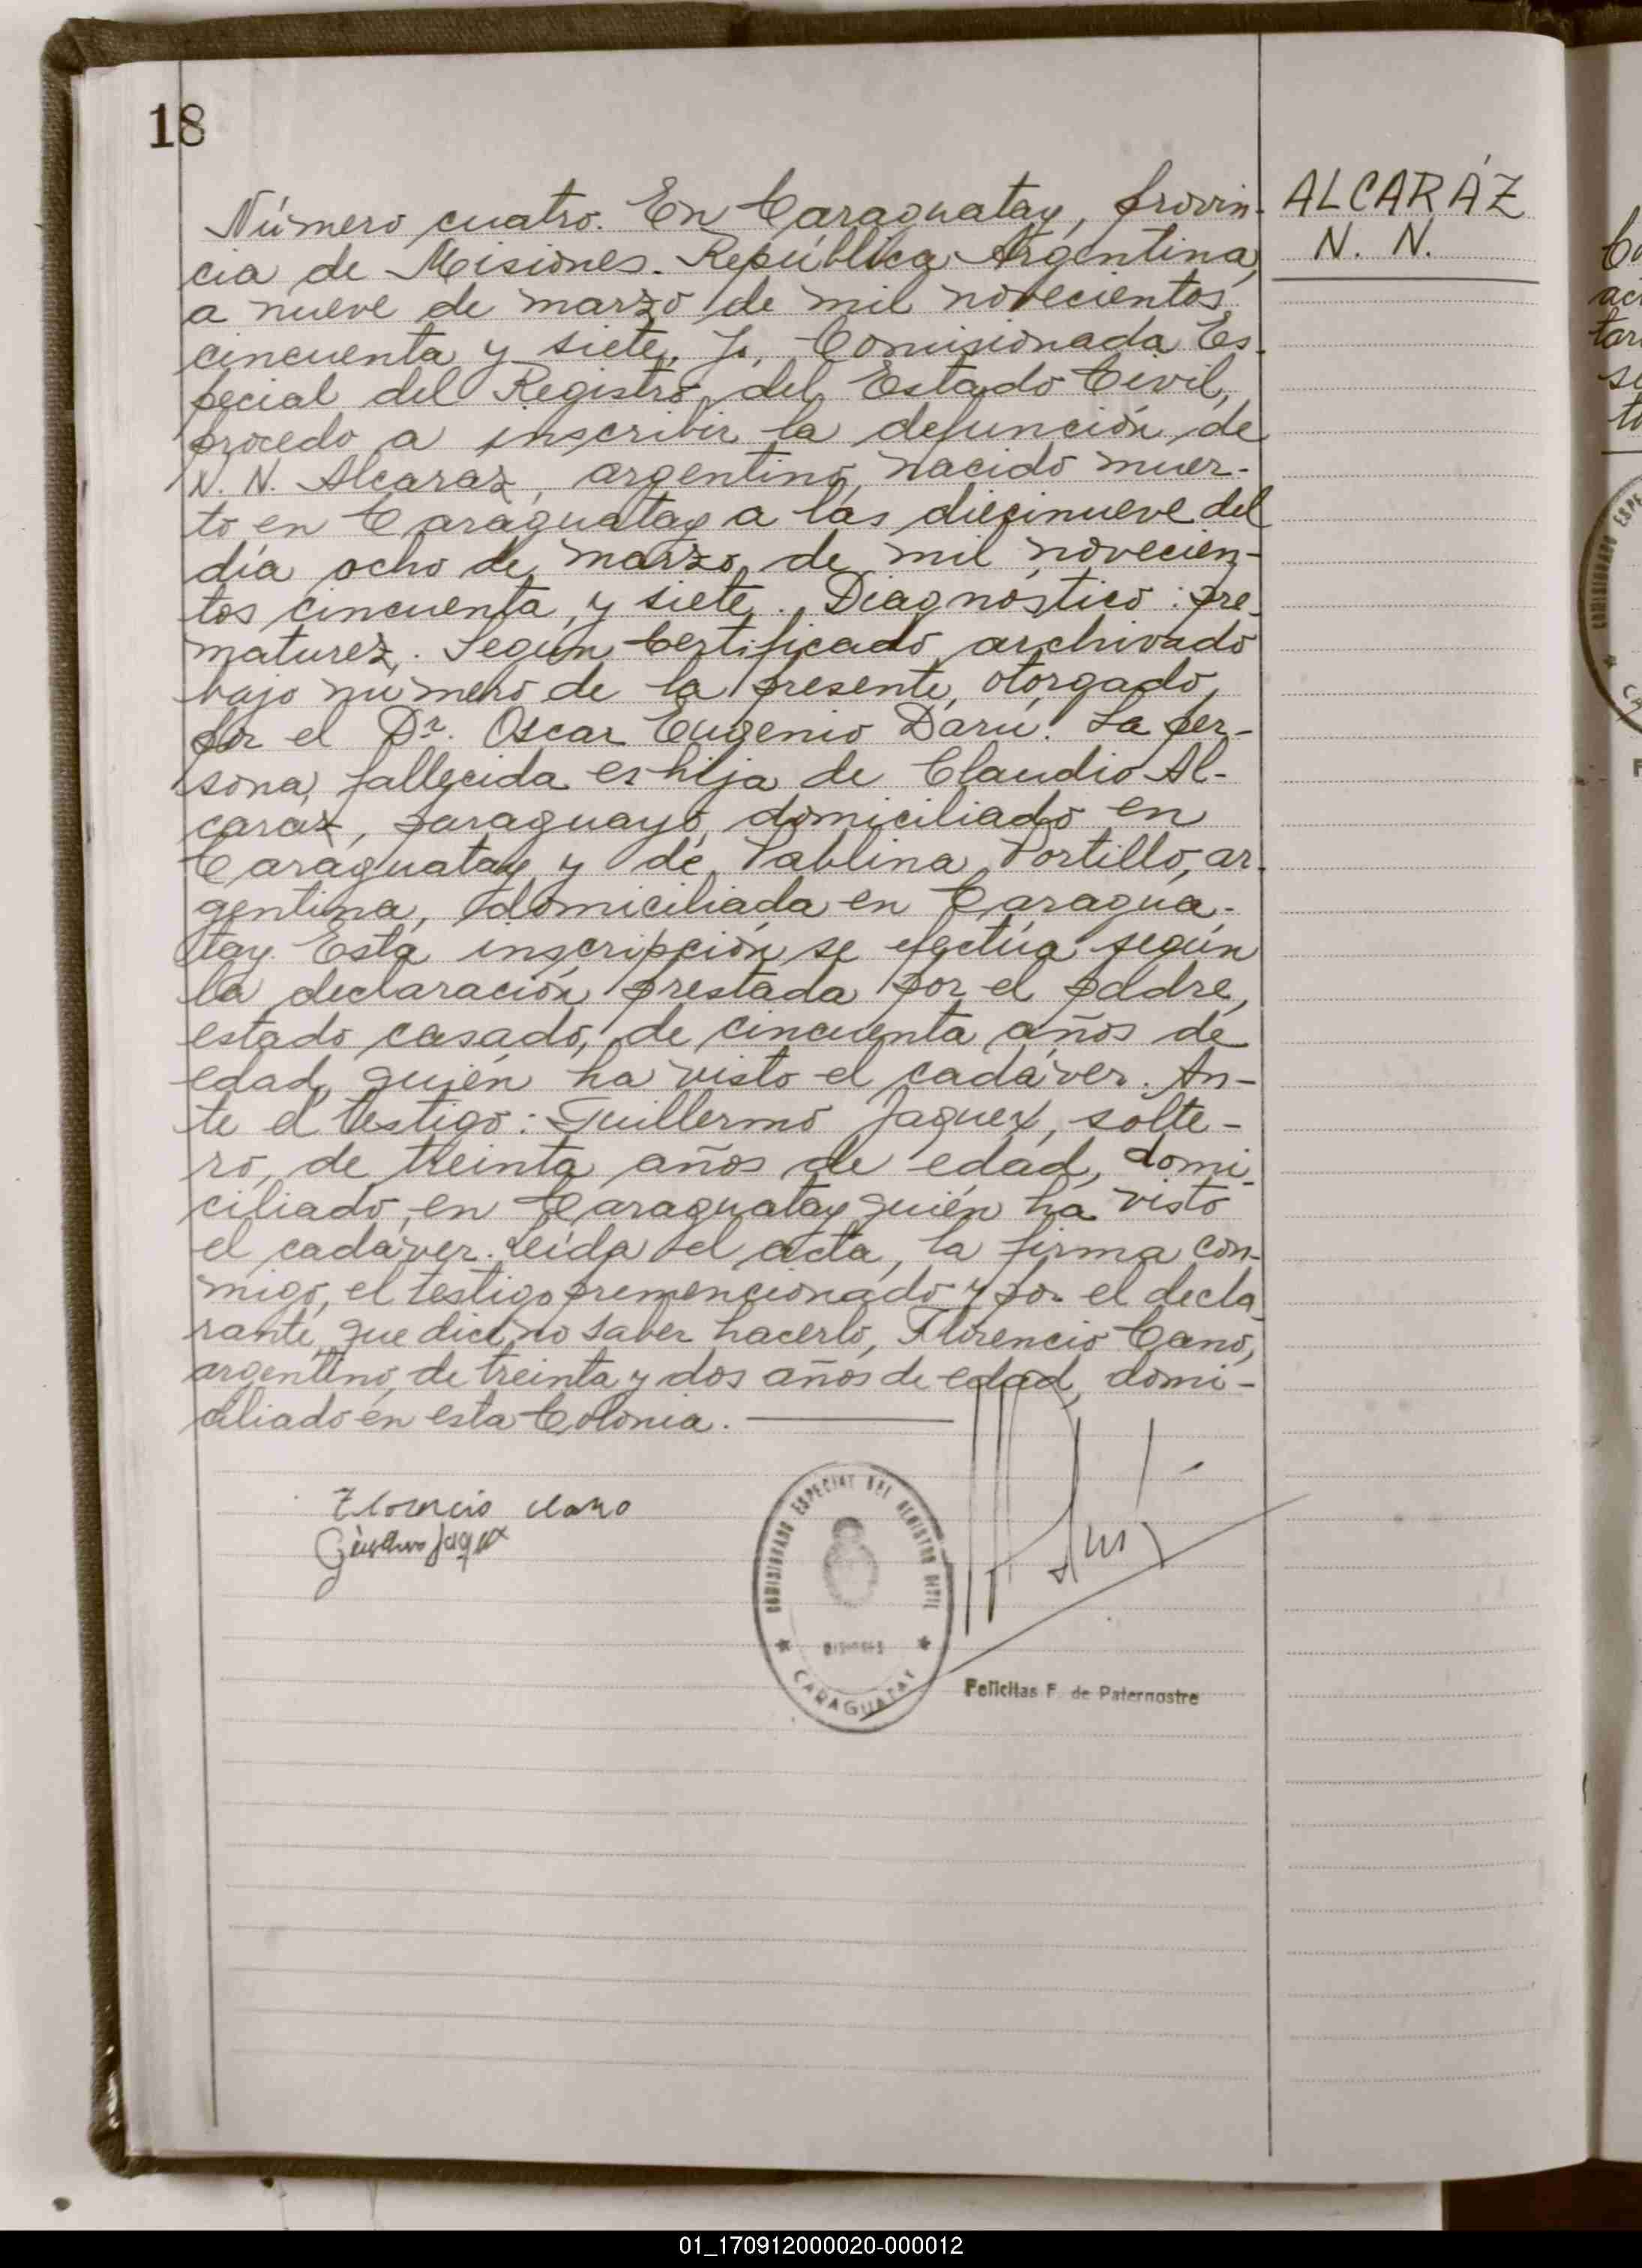 18
ALCARÁZ
N. N.
Número cuatro. En Caraguatay, provin-
cia de Misiones. República Argentina,
a nueve de marzo de mil novecientos
cincuenta y siete. Yo, Comisionada Es-
pecial del Registro del Estado Civil,
procedo a inscribir la defunción de
N. N. Alcaraz, argentino, nacido muer-
to en Caraguatay a las diecinueve del
día ocho de marzo de mil novecien-
tos cincuenta y siete. Diagnóstico: pre-
maturez. Según Certificado archivado
bajo número de la presente, otorgado
por el Dr. Oscar Eugenio Darú. La per-
sona fallecida es hija de Claudio Al-
caraz, paraguayo, domiciliado en
Caraguatay y de Pablina Portillo, ar-
gentina, domiciliada en Caragua-
tay. Esta inscripción se efectúa según
la declaración prestada por el padre,
estado casado, de cincuenta años de
edad, quién ha visto el cadáver. An-
te el testigo: Guillermo Jaquex, solte-
ro, de treinta años de edad, domi-
ciliado en Caraguatay quién ha visto
el cadáver. Leída el acta, la firma con-
migo, el testigo premencionado y por el decla
rante, que dice no saber hacerlo, Florencio Cano,
argentino, de treinta y dos años de edad, domi-
ciliado en esta Colonia.
Florencio Cano
Jaquex
COMISIONADO ESPECIAL DEL REGISTRO CIVIL
MISIONES
CARAGUATAY
Felicitas F. de Paternostre
01_170912000020-000012